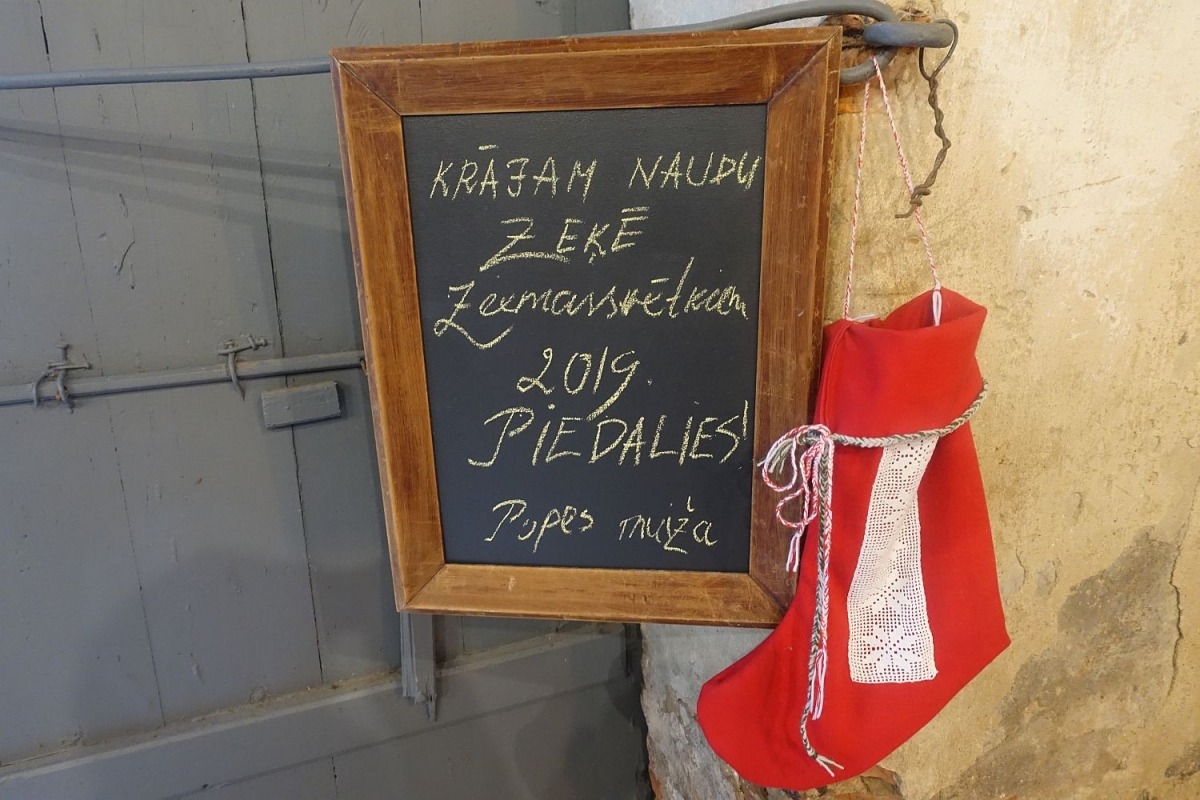 KRĀJAM NAUDU
ZEĶĒ
Ziemassvētkiem
2019.
PIEDALIES!
Popes muiža